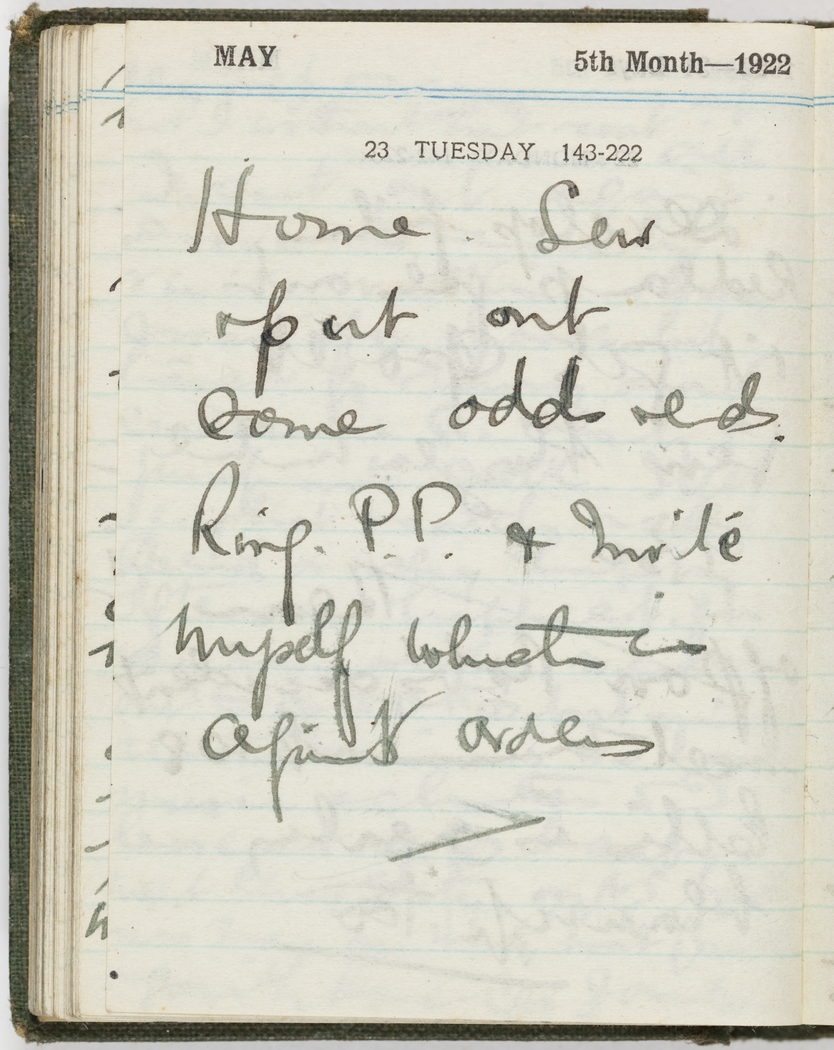 MAY 5th Month—1922
23 TUESDAY 143-222
Home. Sew
& put out
some odds & eds.
Ring. P.P. & Invite
myself which is
against orders